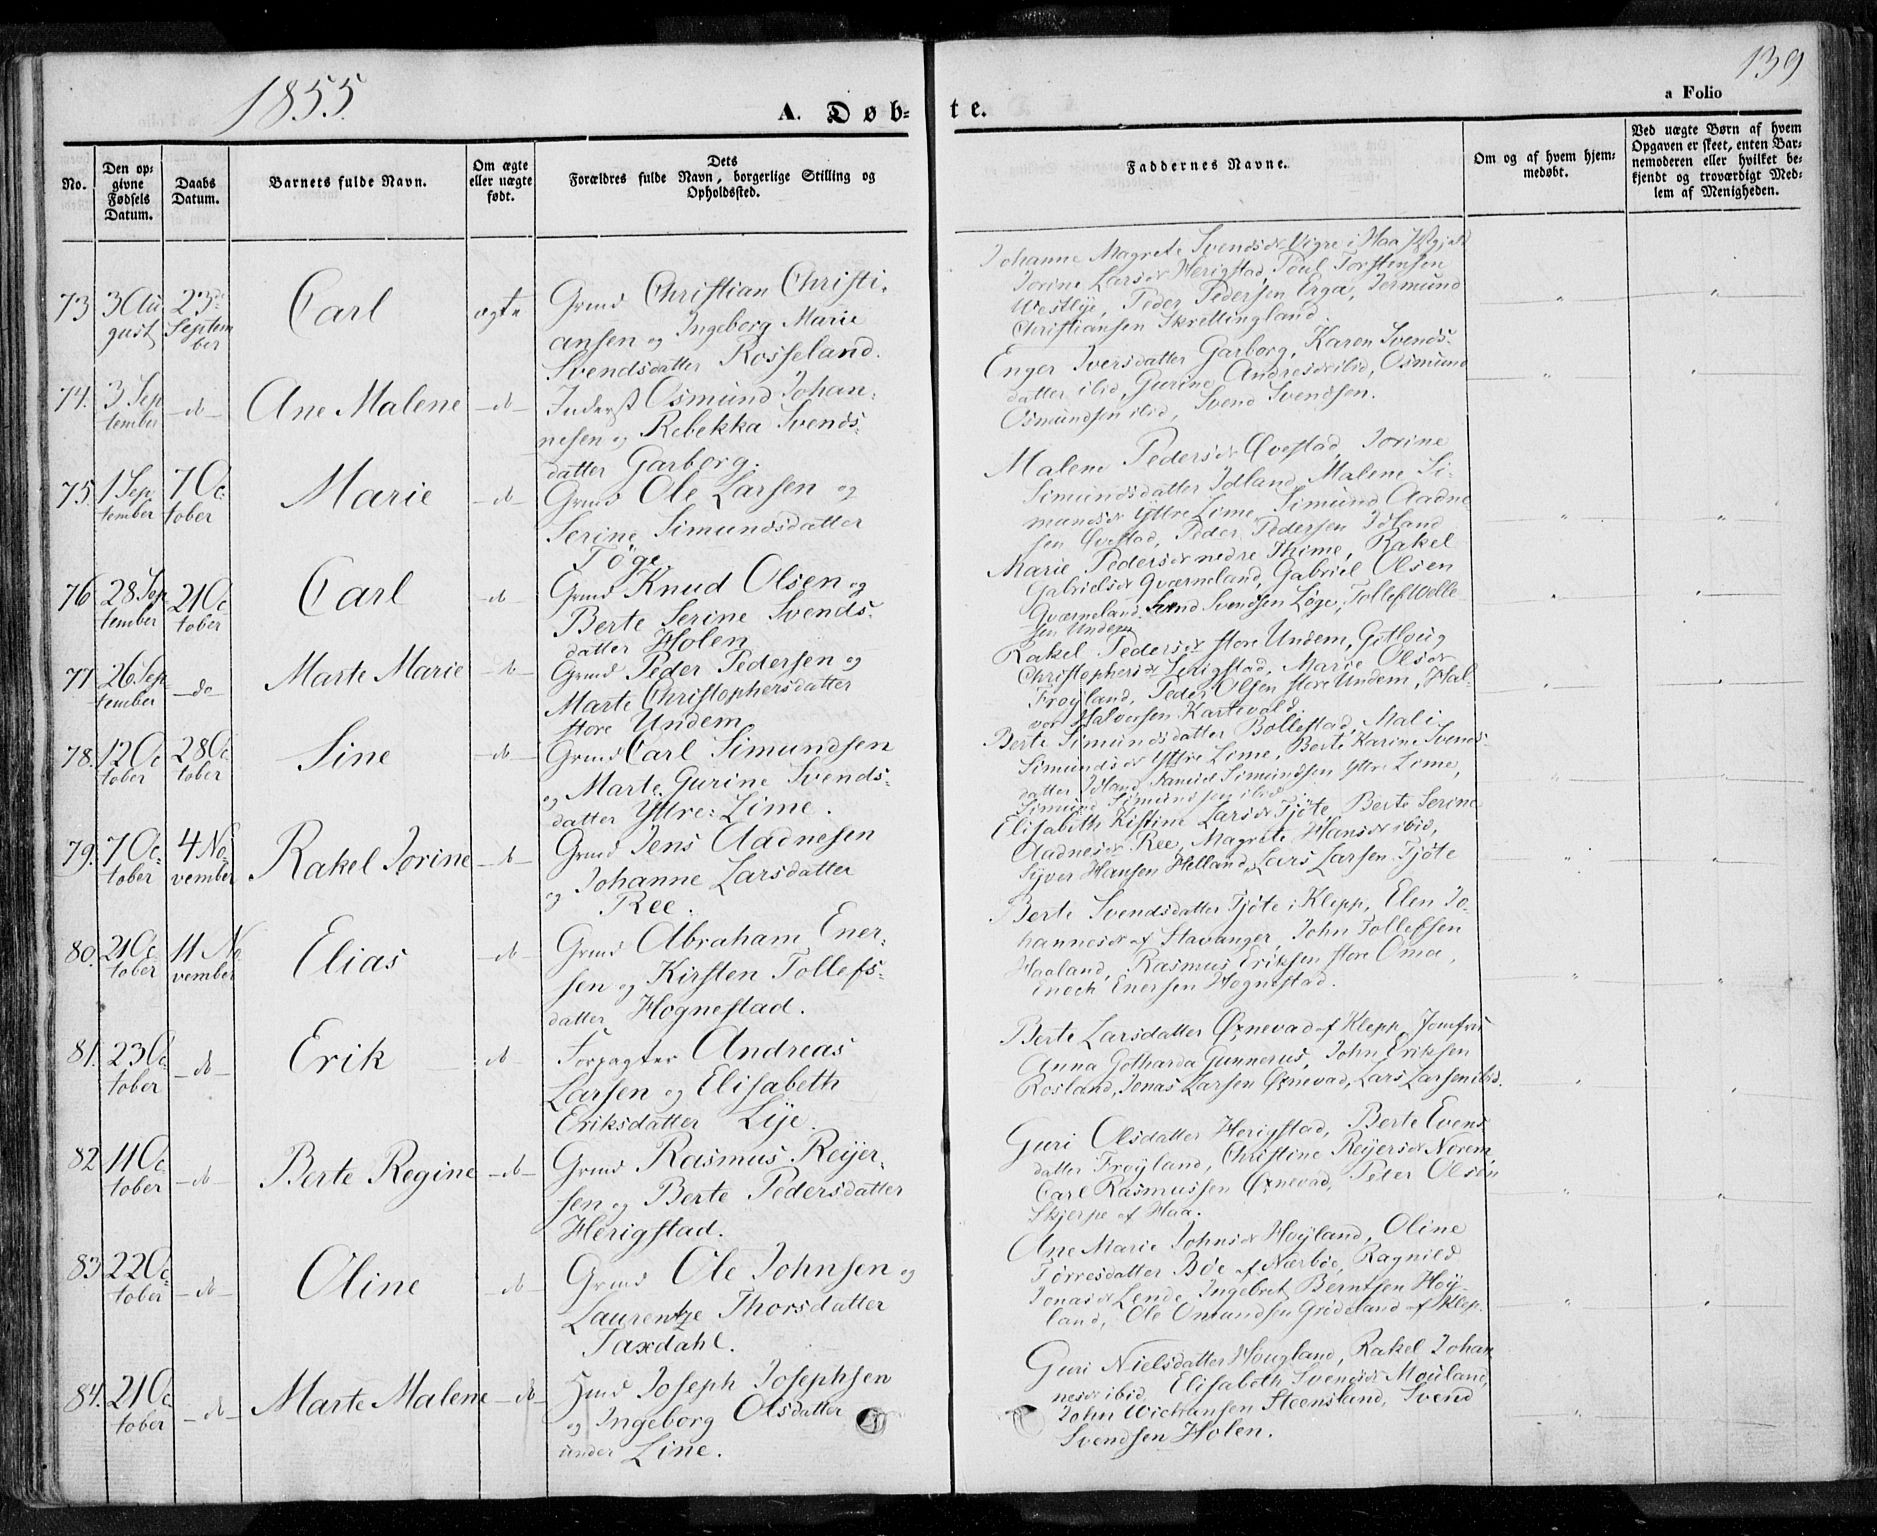 1855.
139
A. Døb-
te.
a Folio
No.
Den op-
givne
Fødsels
Datum.
Daabs
Datum.
Barnets fulde Navn.
Om ægte
eller uægte
født.
Dets
Forældres fulde Navn, borgerlige Stilling og
Opholdssted.
Faddernes Navne.
Om og af hvem hjem-
medøbt.
Ved uægte Børn af hvem
Opgaven er skeet, enten Bar-
nemoderen eller hvilket be-
kjendt og troværdigt Med-
lem af Menigheden.
73 3 Au
gust
23de
Septem
ber
Carl
ægte
Grmd Christian Christi-
ansen og Ingeborg Marie
Svendsdatter Rosseland.
Johanne Magrete Svendsdr Vigre i Haa
Jorine Larsdr Herigstad, Poul Torstensen
Westlye, Peder Pedersen Erga, Jermund
Christiansen Skrettingland.
74. 3 Sep
tember
-do-
Ane Malene
-do-
Inderst Osmund Johan-
nesen og Rebekka Svends-
datter Garborg.
Enger Iversdatter Garborg, Karen Svends-
datter ibid, Gurine Andresdr ibid, Osmund
Osmundsen ibid, Svend Svendsen.
75. 1 Sep
tember
7 Oc-
tober
Marie
-do-
Grmd Ole Larsen og
Serine Simundsdatter
Töge
Malene Pedersdr Qvestad, Jorine
Simundsdatter Idland, Malene Si-
mundsdr Yttre Lime, Simund Aadne
sen Qvestad, Peder Pedersen Idland
76 28 Sep
tember
21 Oc
tober
Carl
-do-
Grmd Knud Olsen og
Berte Serine Svends-
datter Holen
Marie Pedersdr nedre Thime, Rakel
Gabrielsdr Qværneland, Gabriel Olsen
Qværneland, Svend Svendsen Löge, Tollef Welle
sen Undem
77 26 Sep
tember
-do-
Marte Marie
-do-
Grmd Peder Pedersen og
Marte Christophersdatter
store Undem
Rakel Pedersdr store Undem, Gitlaug
Christophersdr Serigstad, Marie Olsdr
Fröyland, Peder Olsen store Undem, Hal-
vor Halvorsen Kartevold.
78. 12 Oc
tober
28 Oc
tober
Sine
-do-
Grmd Carl Simundsen
og Marte Gurine Svends-
datter Yttre-Lime.
Berte Simundsdatter Bollestad, Mali
Simundsdr Yttre Lime, Berte Karine Svends-
datter Idland, Samuel Simundsen Yttre Lime,
Simund Simundsen ibid
79. 7 Oc-
tober
4 No-
vember
Rakel Jorine
-do-
Grmd Jens Aadnesen
og Johanne Larsdatter
Ree.
Elisabeth Kistine Larsdr Tjöte, Berte Serine
Aadnesdr Ree, Magrete Hansdr ibid,
Syver Hansen Helland, Lars Larsen Tjöte
80. 21 Oc
tober
11 No
vember
Elias
-do-
Grmd Abraham Ener-
sen og Kirsten Tollefs-
datter Hognestad.
Berte Svendsdatter Tjöte i Klepp, Elen Jo-
hannesdr af Stavanger, John Tollefsen
Haaland, Rasmus Eriksen store Oma,
Enech Enersen Hognestad.
81. 23 Oc-
tober
-do-
Erik
-do-
Forpagter Andreas
Larsen og Elisabeth
Eriksdatter Lye.
Berte Larsdatter Öxnevad af Klepp, Jomfru
Anna Gotharda Gunnerus, John Eriksen
Rosland, Jonas Larsen Öxnevad, Lars Larsen ibid.
82 11 Oc
tober
-do-
Berte Regine
-do-
Grmd Rasmus Reyer-
sen og Berte Pedersdatter
Herigstad.
Guri Olsdatter Herigstad, Berte Evens
datter Fröyland, Christine Reyersdr Norem
Carl Rasmussen Öxnevad, Peter Olsen
Skjerpe af Haa.
83 22 Oc-
tober
-do-
Oline
-do-
Grmd Ole Johnsen og
Laurentze Thorsdatter
Taxdahl.
Ane Marie Johnsdr Höyland, Oline
Torresdatter Böe af Nærböe, Ragnild
Jonasdr Lende, Ingebret Berntsen Höy-
land, Ole Omundsen Grödeland af Klep.
84. 21 Oc
tober
-do-
Marte Malene
-do-
Hmd Joseph Josephsen
og Ingeborg Olsdatter
under Line.
Guri Nielsdatter Hougland, Rakel Johan
nesdr ibid, Elisabeth Svendsdr Mouland,
John Steensland, Svend
Svendsen Holen.